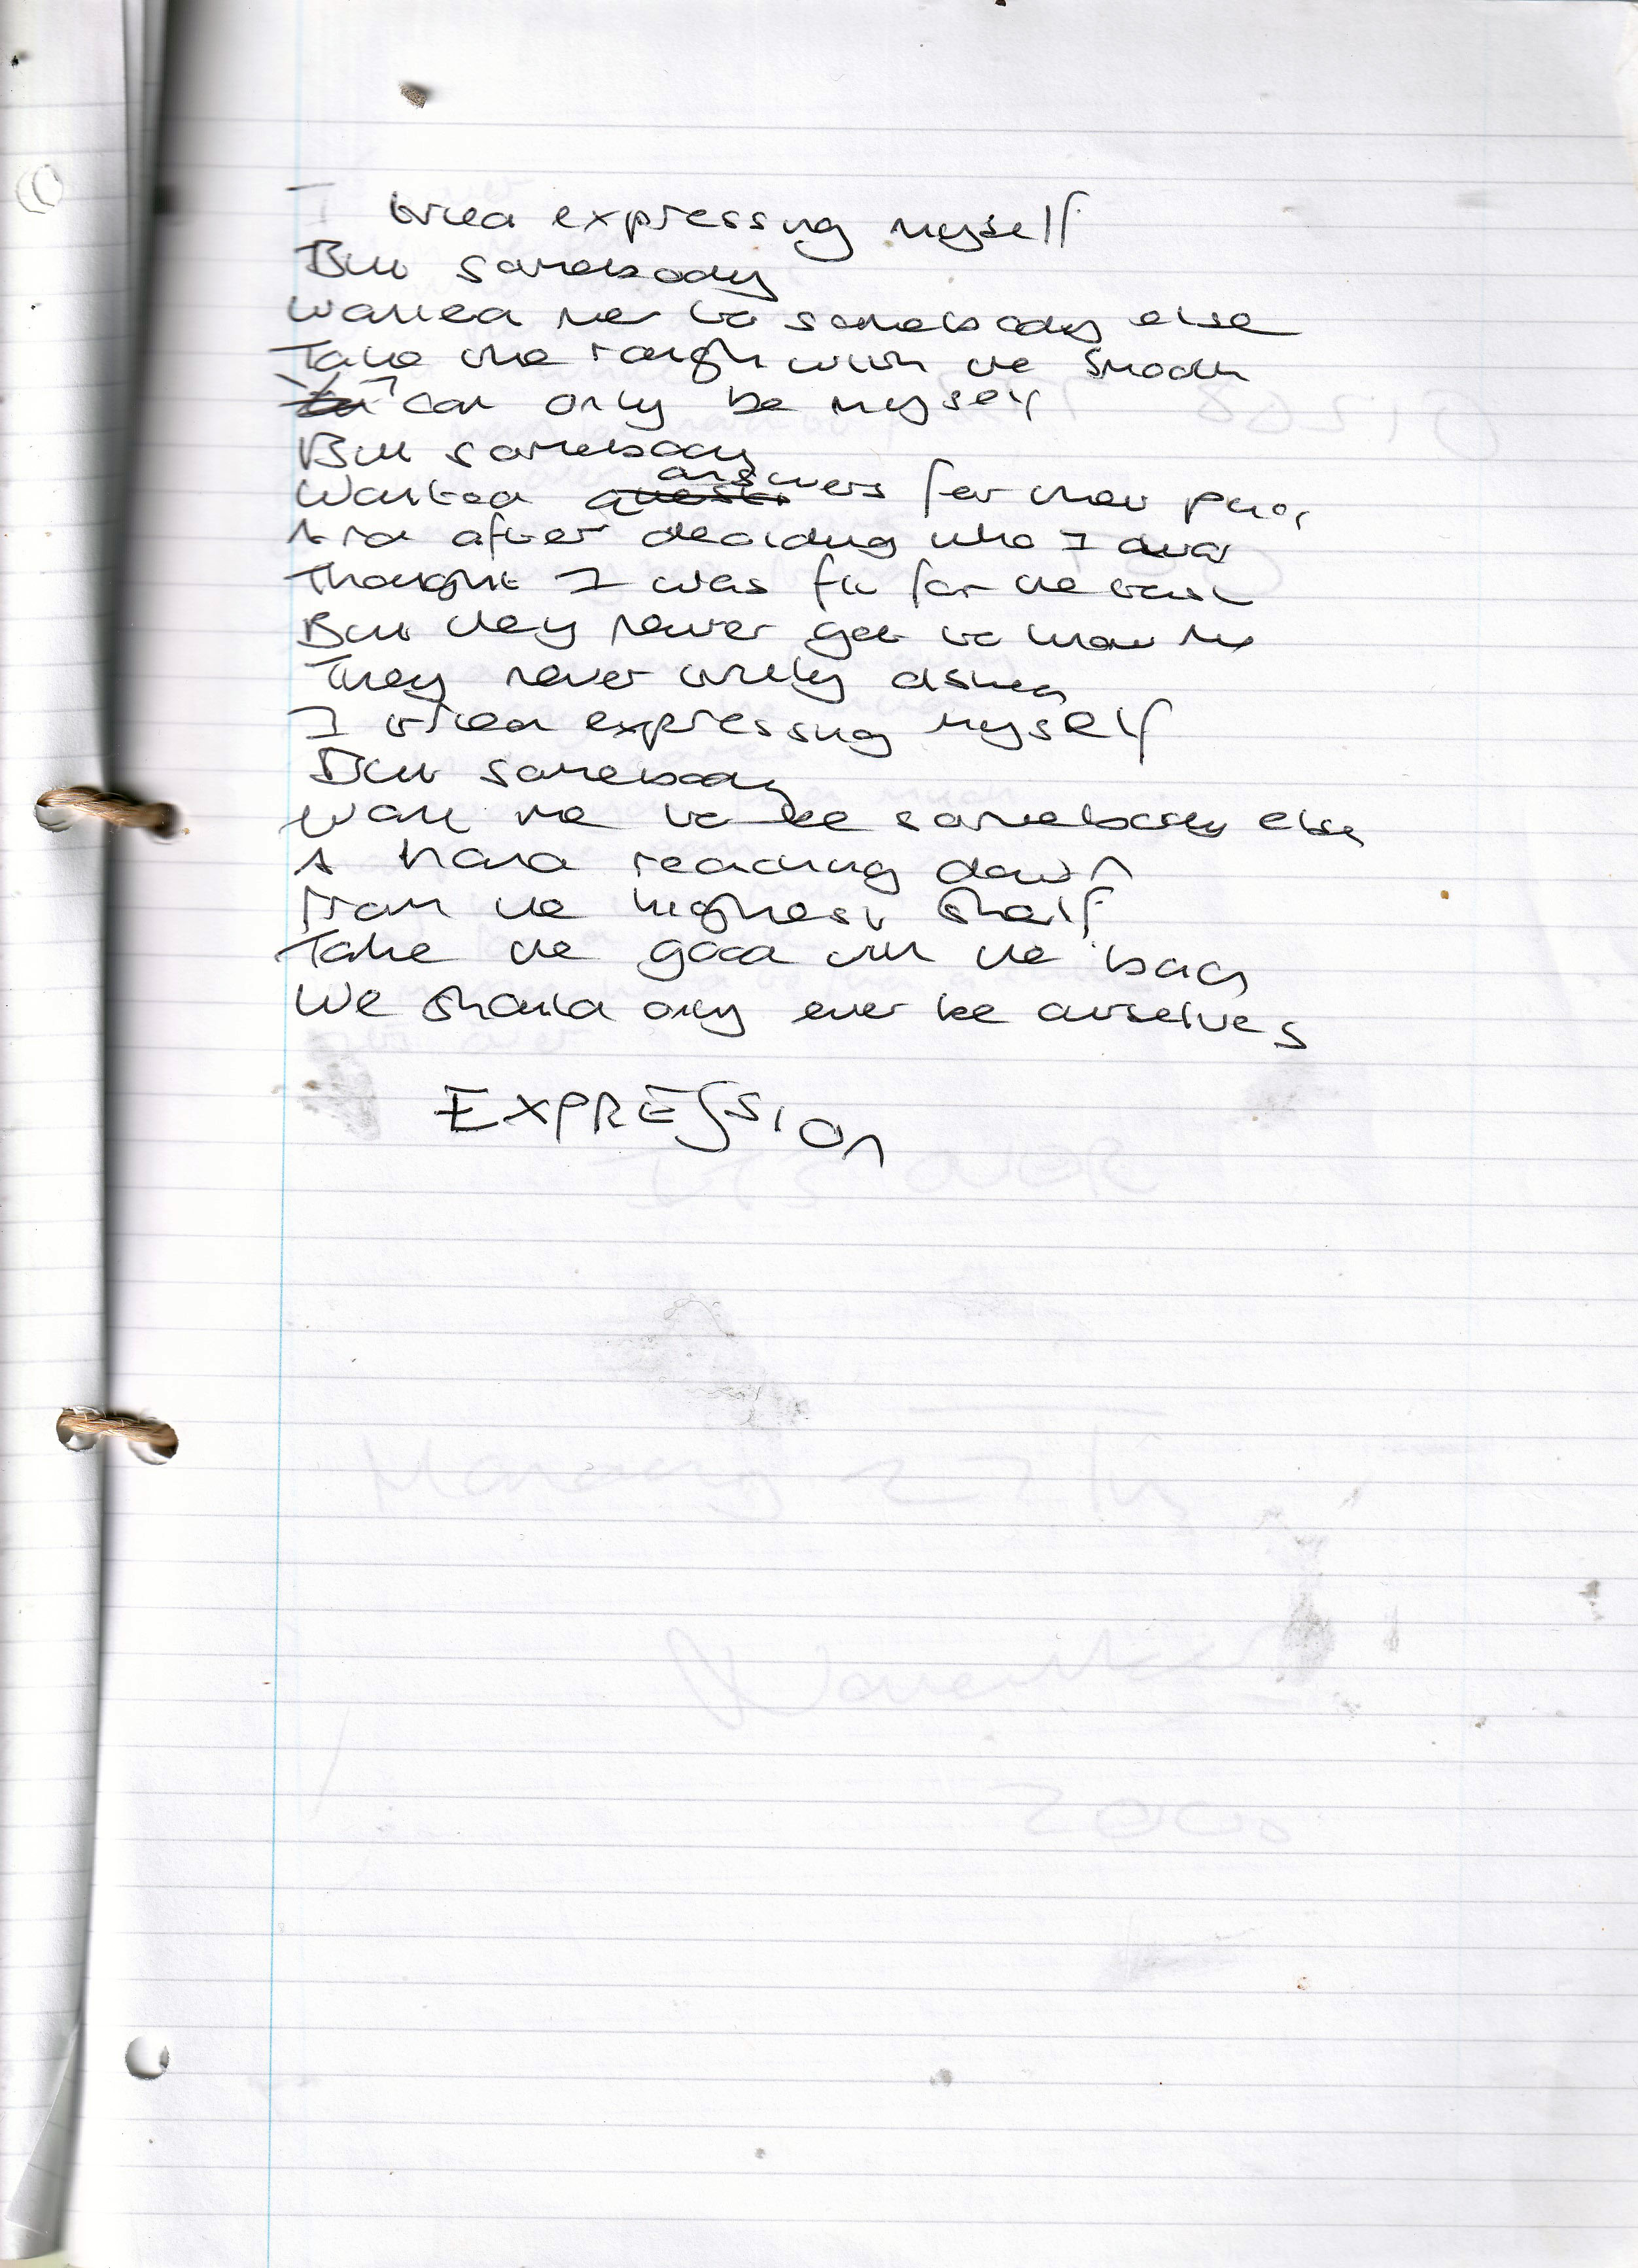 I tried expressing myself
But somebody
Wanted me to somebody else
Take the rough with the smooth
I can only be myself
But somebody
Wanted answers for their
And after deciding who I was
Thought I was fit for the task
But they never got to know me
They never really asked
I tried expressing myself
But somebody
Want me to be somebody else
A hand reaching down
From the highest shelf
Take the good with the bad
We should only ever be ourselves
EXPRESSION